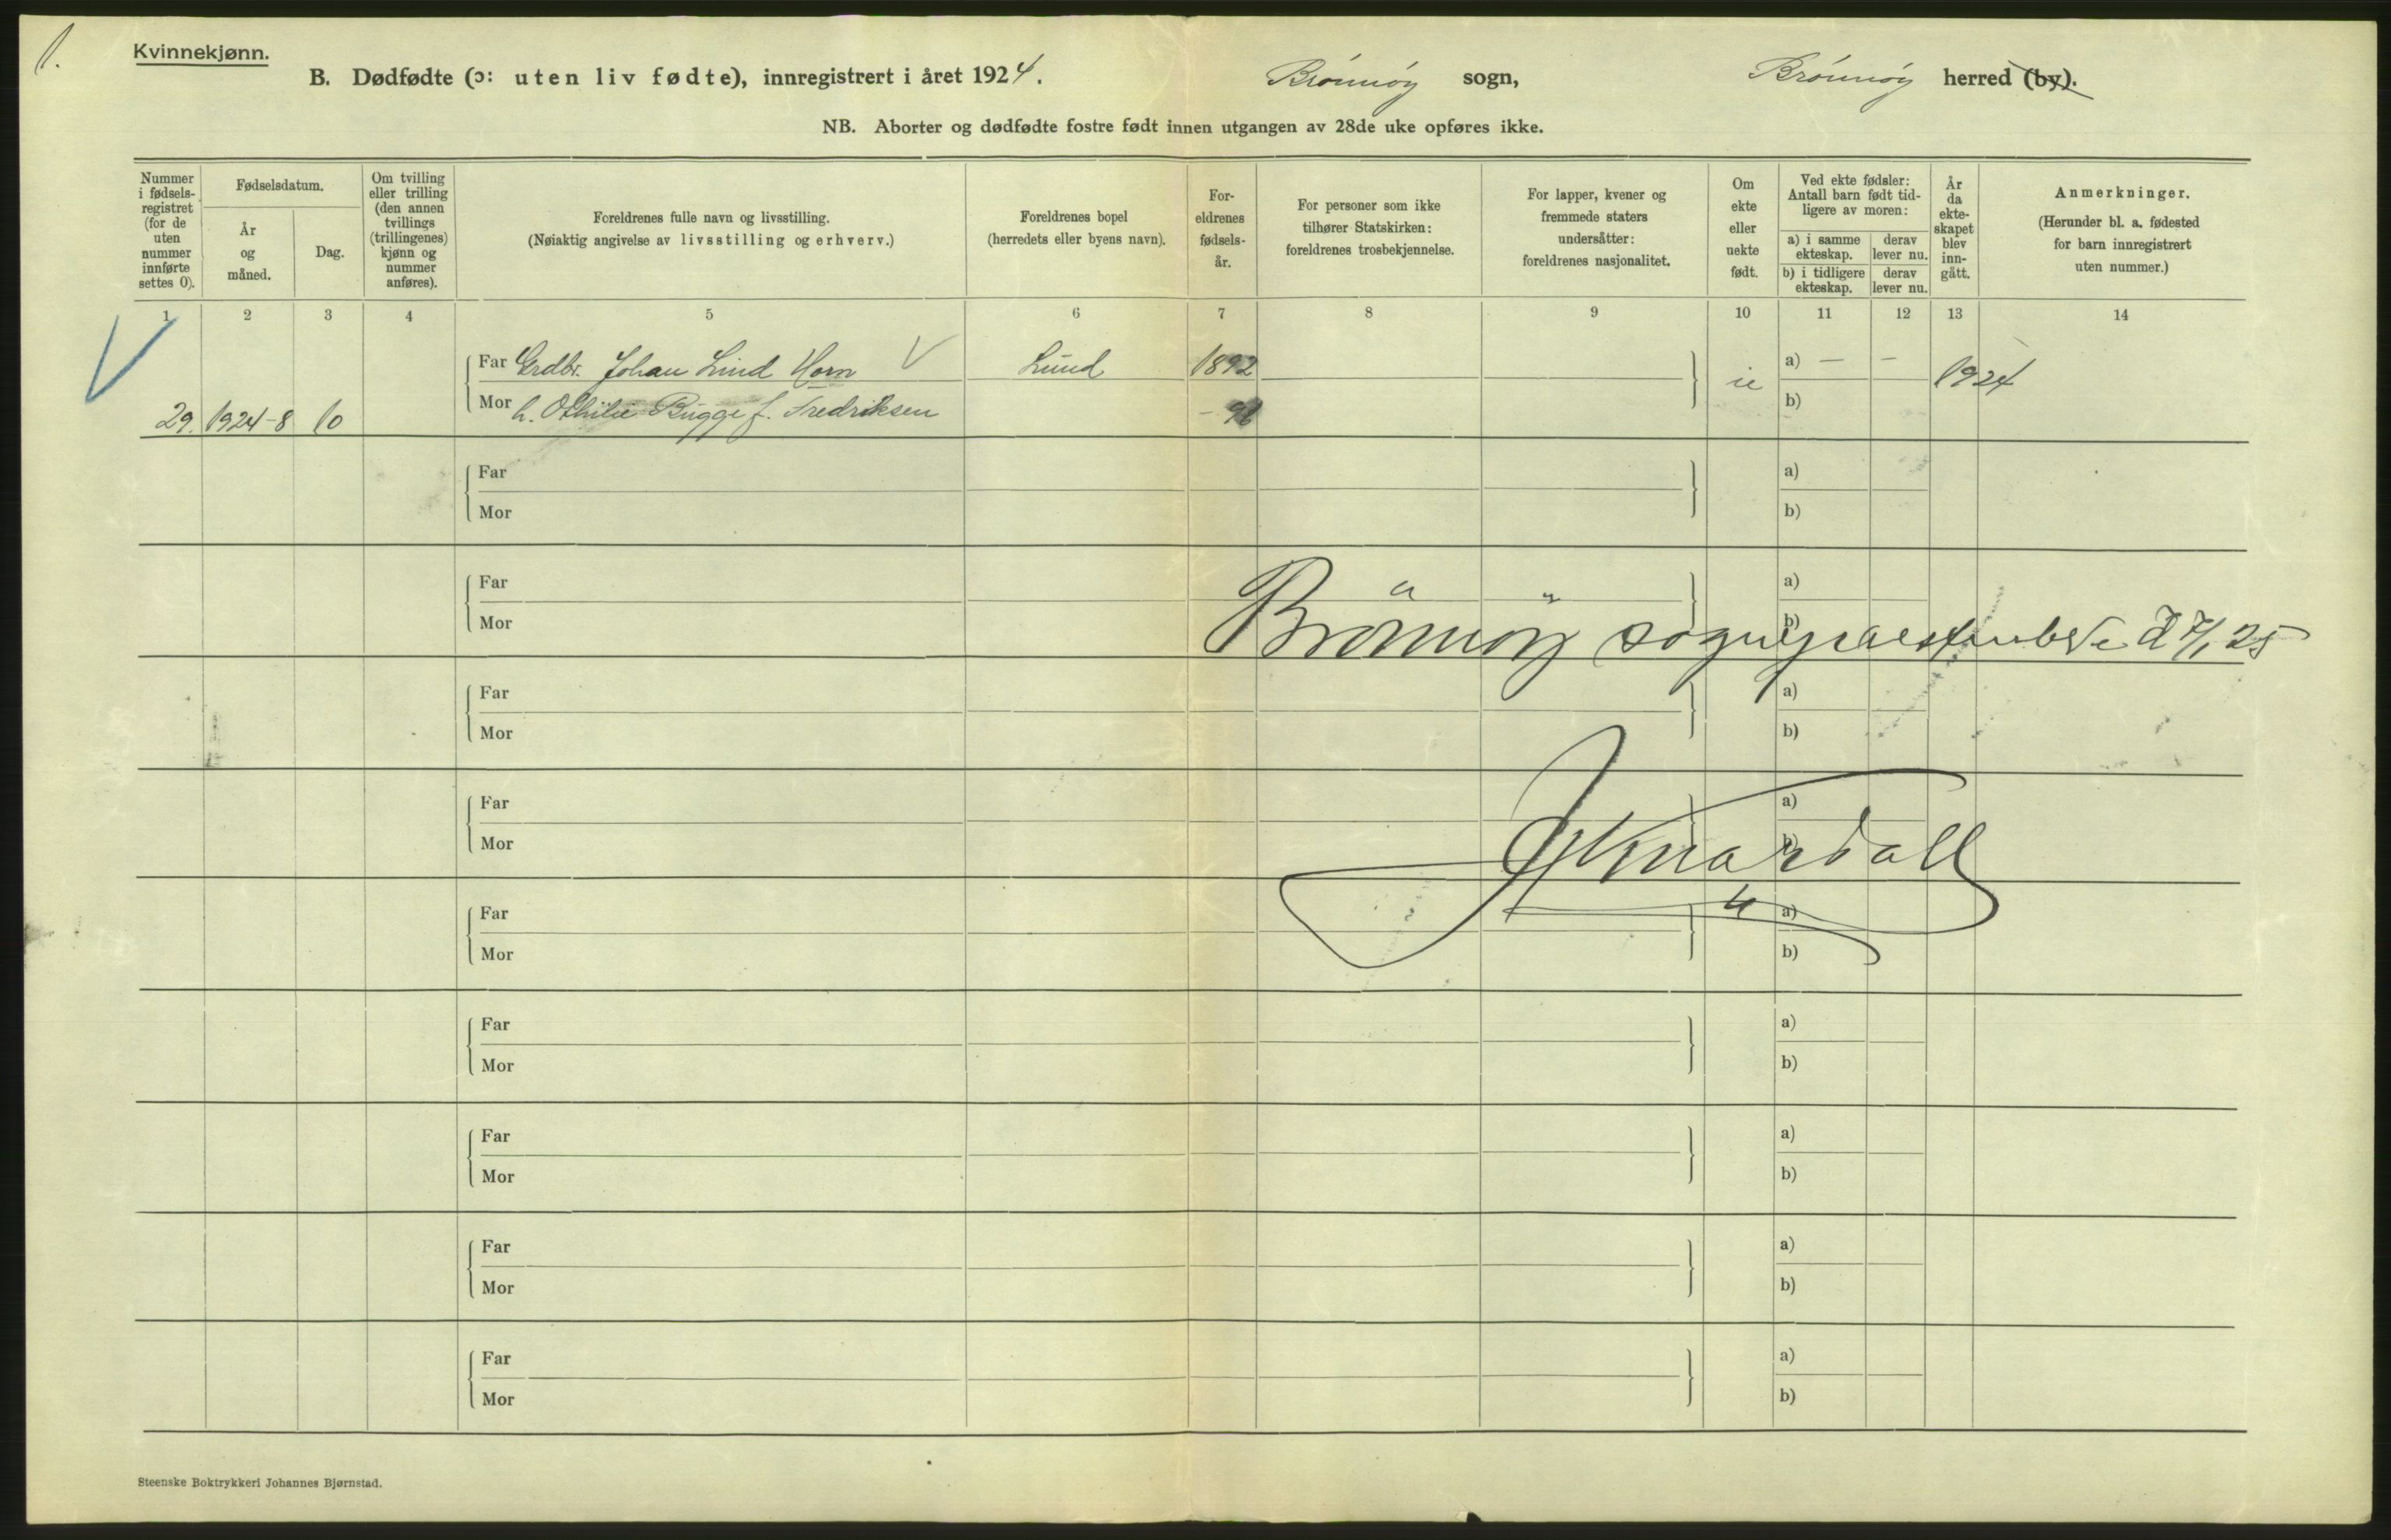 1.
Kvinnekjønn.
B. Dødfødte (ɔ: uten liv fødte), innregistrert i året 1924. Brønnøy sogn, Brønnøy herred (by).
NB. Aborter og dødfødte fostre født innen utgangen av 28de uke opføres ikke.
Nummer i fødselsregistret (for de uten nummer innførte settes 0).
Fødselsdatum.
År og måned.
Dag.
Om tvilling eller trilling (den annen tvillings (trillingenes) kjønn og nummer anføres).
Foreldrenes fulle navn og livsstilling.
(Nøiaktig angivelse av livsstilling og erhverv.)
Foreldrenes bopel
(herredets eller byens navn).
Foreldrenes fødselsår.
For personer som ikke tilhører Statskirken: foreldrenes trosbekjennelse.
For lapper, kvener og fremmede staters undersåtter: foreldrenes nasjonalitet.
Om ekte eller uekte født.
Ved ekte fødsler: Antall barn født tidligere av moren:
a) i samme ekteskap. derav lever nu.
b) i tidligere ekteskap. derav lever nu.
År da ekteskapet blev inngått.
Anmerkninger.
(Herunder bl. a. fødested for barn innregistrert uten nummer.)
1 2 3 4 5 6 7 8 9 10 11 12 13 14
Far Grdbr. Johan Lind Horn Lund 1892 a) — –
29. 1924-8 10 Mor h. Othilie Bugge f. Fredriksen – b) 1924
Far a)
Mor b)
Far a)
Mor b)
Brønnøy sogneprestembede d 7/1 25
Far a)
Mor b)
Far a)
Mor b)
Far a)
Mor b)
Far a)
Mor b)
Far a)
Mor b)
Far a)
Mor b)
Far a)
Mor b)
Steenske Boktrykkeri Johannes Bjørnstad.